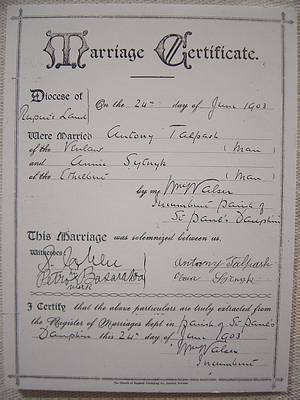 Marriage Certificate.
Diocese of
Rupert's Land
On the 24th day of June 1903
Were Married Antony Talpash
of the Venlaw (Man)
and Annie Sytnyk
of the Ethelbert (Man)
by me, Wm Walser
Incumbent Parish of
St. Paul's Dauphin
This Marriage was solemnized between us,
Witnesses
Antoony Talpash
Petro Basaraba
mark
I Certify that the above particulars are truly extracted from
the Register of Marriages kept in Parish of St. Paul's
Dauphin this 24th day of June 1903
Wm Walser
Incumbent